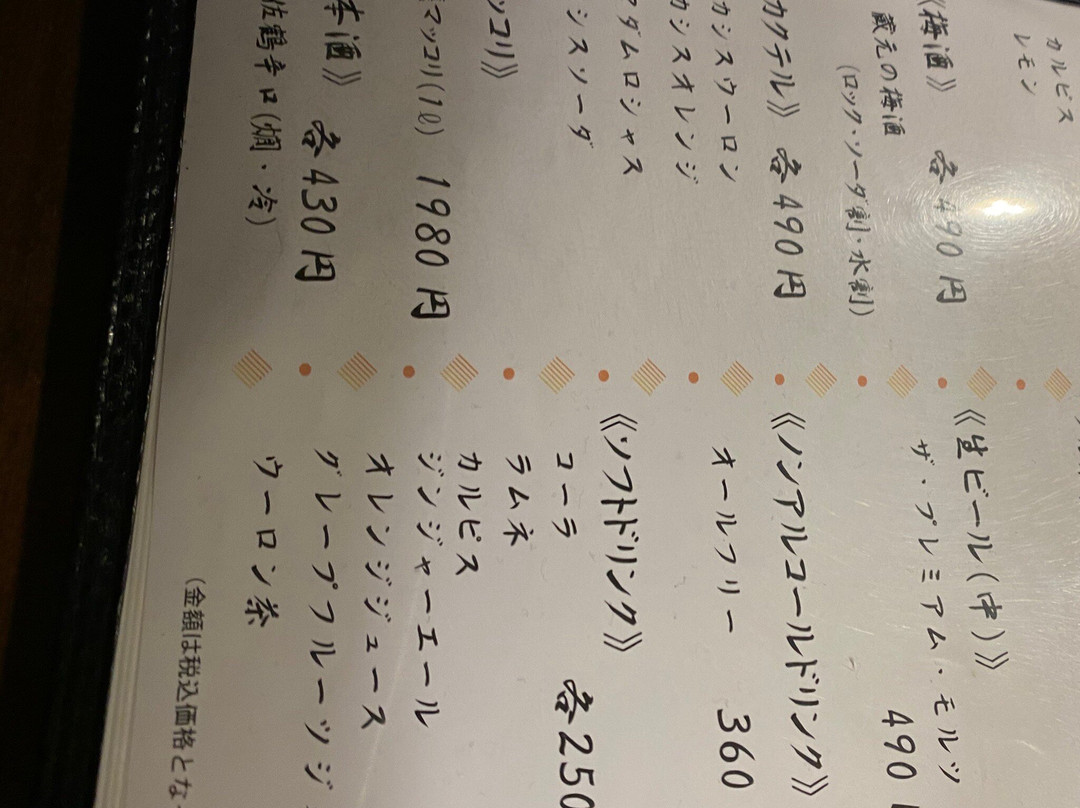 カルピス
レモン
《梅酒》 各490円
蔵元の梅酒
(ロック・ソーダ割・水割)
カクテル》 各490円
カシスウーロン
カシスオレンジ
アダムロシャス
シスソーダ
ッコリ》
マッコリ(1ℓ) 1980円
本酒》 各430円
佐鶴辛口(燗・冷)
《生ビール(中)》
ザ・プレミアム・モルツ
490
《ノンアルコールドリンク》
オールフリー 360
《ソフトドリンク》
各250
コーラ
ラムネ
カルピス
ジンジャーエール
オレンジジュース
グレープフルーツジ
ウーロン茶
(金額は税込価格とな